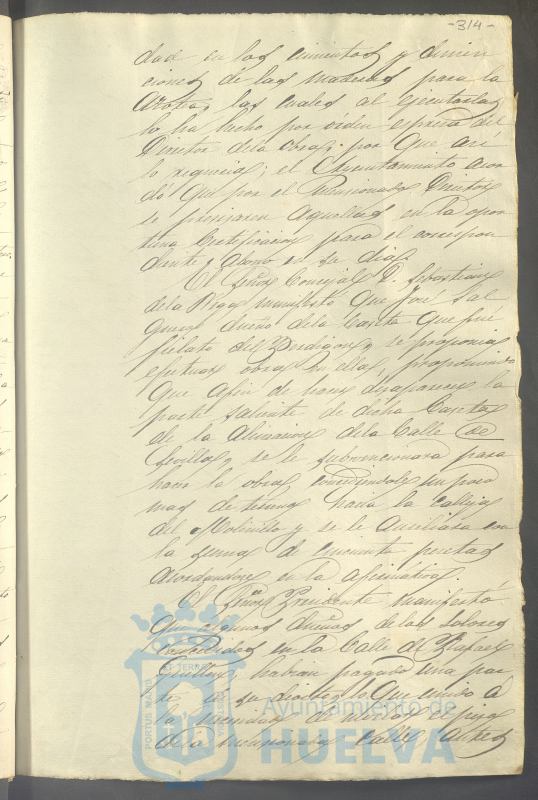 -314-
dad en los cimientos y dimen
ciones de las maderas para la
azotea, las cuales al ejecutarlas
lo ha hecho por orden espresa del
Director de la obra, por que asi
lo requeria; el Ayuntamiento acor
dó que por el mencionado Director
se precisaren aquellas en la opor
tuna Certificacion para el correspon
diente abono en su dia.
El Señor Concejal D. Sebastian
de la Vega manifestó que José Sal
guero dueño de la Caseta que fué
fielato del Verdigon, se proponia
efectuar obras en ella, proponiendo
que á fin de hacer desaparecer la
parte saliente de dicha Caseta
de la alineacion de la Calle de
Sevilla, se le subvencionara para
hacer la obra, concediendole un poco
mas de terreno hacia la Calleja
del Molinillo y se le auxiliara con
la suma de cincuenta pesetas
acordandose en la afirmativa.
El Señor Presidente manifestó
que algunos dueños de los solares
concedidos en la Calle de Rafael
Guillen, habian pagado una par
te de su costo, lo que unido á
la necesidad de mejorar el piso
de la mencionada Calle
PORTUS MARIS
ET TERRAE
CUSTODIA
Ayuntamiento de
HUELVA